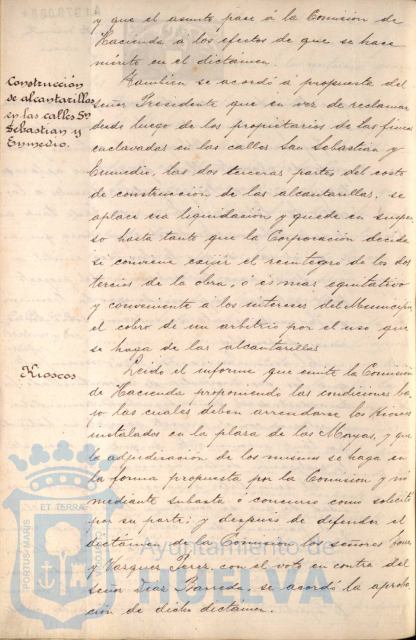 y que el asunto pase á la Comisión de
Hacienda á los efectos de que se hace
mérito en el dictamen.
Construcción
de alcantarillas
en las calles Sn
Sebastian y
Enmedio.
Tambien se acordó á propuesta del
Señor Presidente que en vez de reclamar
desde luego de los propietarios de las fincas
enclavadas en las calles San Sebastian y
Enmedio, las dos terceras partes del costo
de construcción de las alcantarillas, se
aplace esa liquidación y quede en suspen
so hasta tanto que la Corporación decida
si conviene exijir el reintegro de los dos
tercios de la obra, ó es mas equitativo
y conveniente á los intereses del Municipio
el cobro de un arbitrio por el uso que
se haga de las alcantarillas
Kioscos
Leido el informe que emite la Comisión
de Hacienda proponiendo las condiciones ba
jo las cuales deben arrendarse los Kioscos
instalados en la plaza de las Monjas, y que
la adjudicación de los mismos se haga en
la forma propuesta por la Comision y no
mediante subasta ó concurso como solicitó
por su parte; y después de defender el
dictámen de la Comisión los señores
y Vazquez Perez, con el voto en contra del
Señor Diaz Barrera, se acordó la aproba
ción de dicho dictámen.
PORTUS MARIS
ET TERRAE
Ayuntamiento de
HUELVA